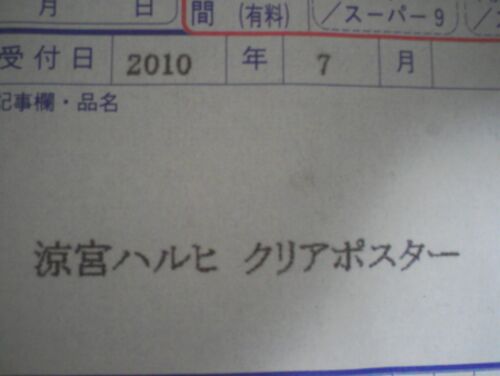 月 日 間 (有料) /スーパー9
受付日 2010 年 7 月
記事欄・品名
涼宮ハルヒ クリアポスター